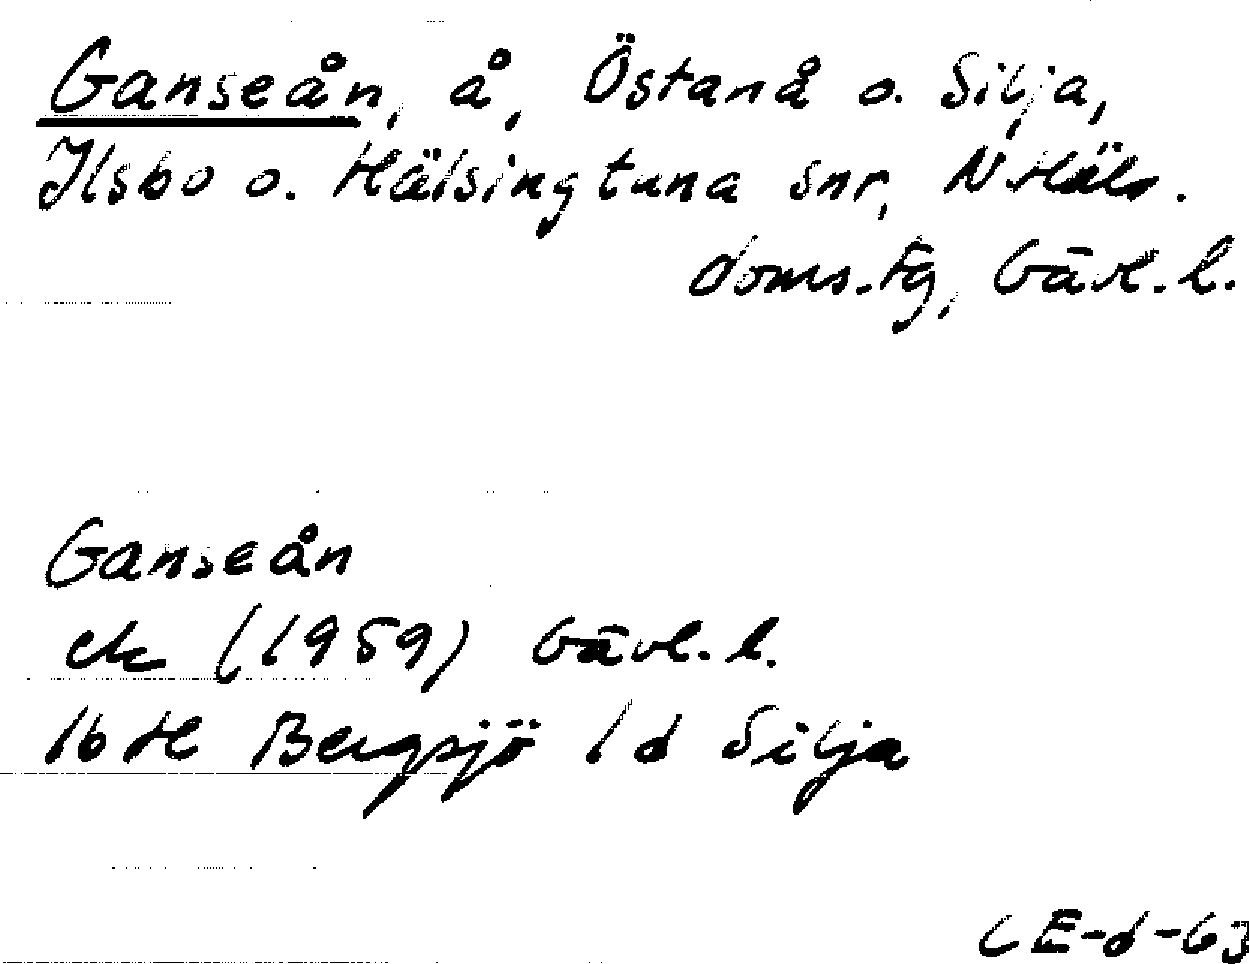 Ganseån, å, Östanå o. Silja,
Ilsbo o. Hälsingtuna snr, N Häls.
doms.tg, Gävl. l.
Ganseån
ek (1959) Gävl. l.
16 H Bergsjö 1 d Silja
CE-d-63